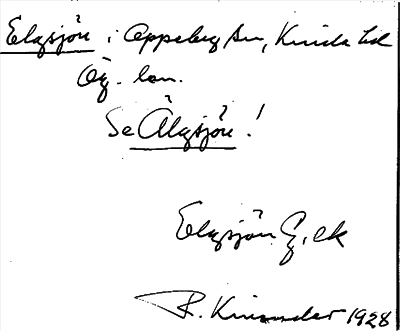 Elgsjön i Oppeby sn, Kinda hd
Ög. län.
Se Älgsjön!
Elgsjön G. ek
R. Kinander 1928